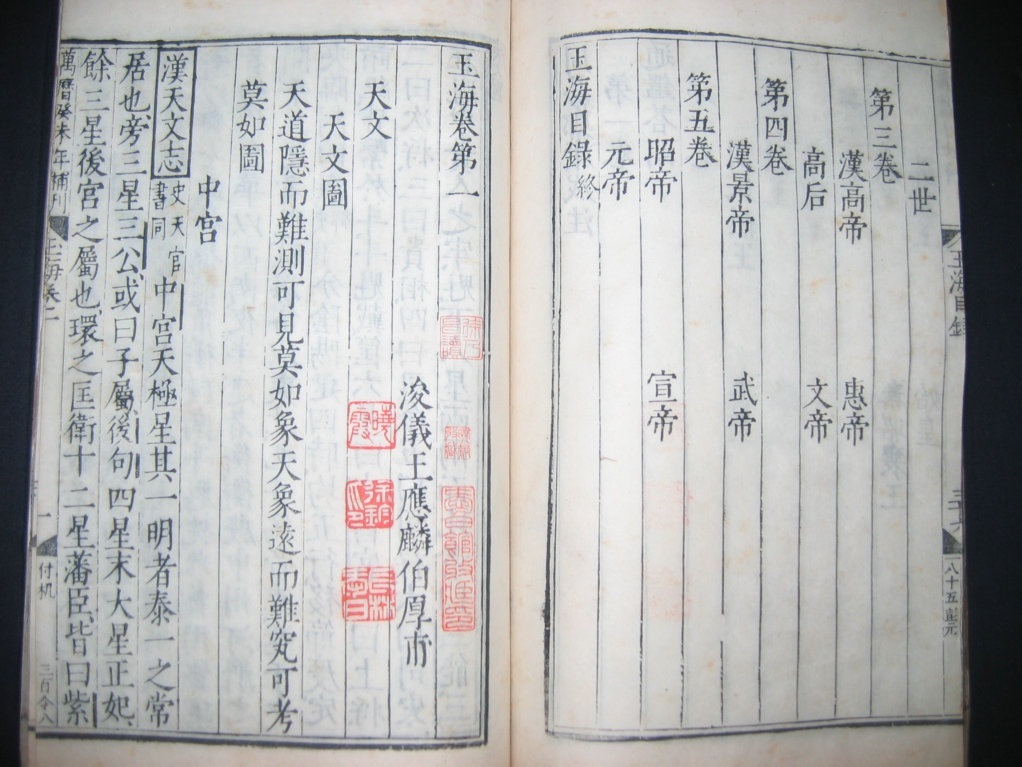 二世
第三卷
漢高帝 惠帝
高后 文帝
第四卷
漢景帝 武帝
第五卷
昭帝 宣帝
元帝
玉海目錄終
玉海目錄
玉海卷第一
浚儀王應麟伯厚甫
天文
天文圖
天道隱而難測可見莫如象天象遠而難究可考
莫如圖
中宮
漢天文志史天官書同中宮天極星其一明者泰一之常
居也旁三星三公或曰子屬後句四星末大星正妃
餘三星後宮之屬也環之匡衛十二星藩臣皆曰紫
萬曆癸未年補刊
一
付机
曉霞
徐鈞